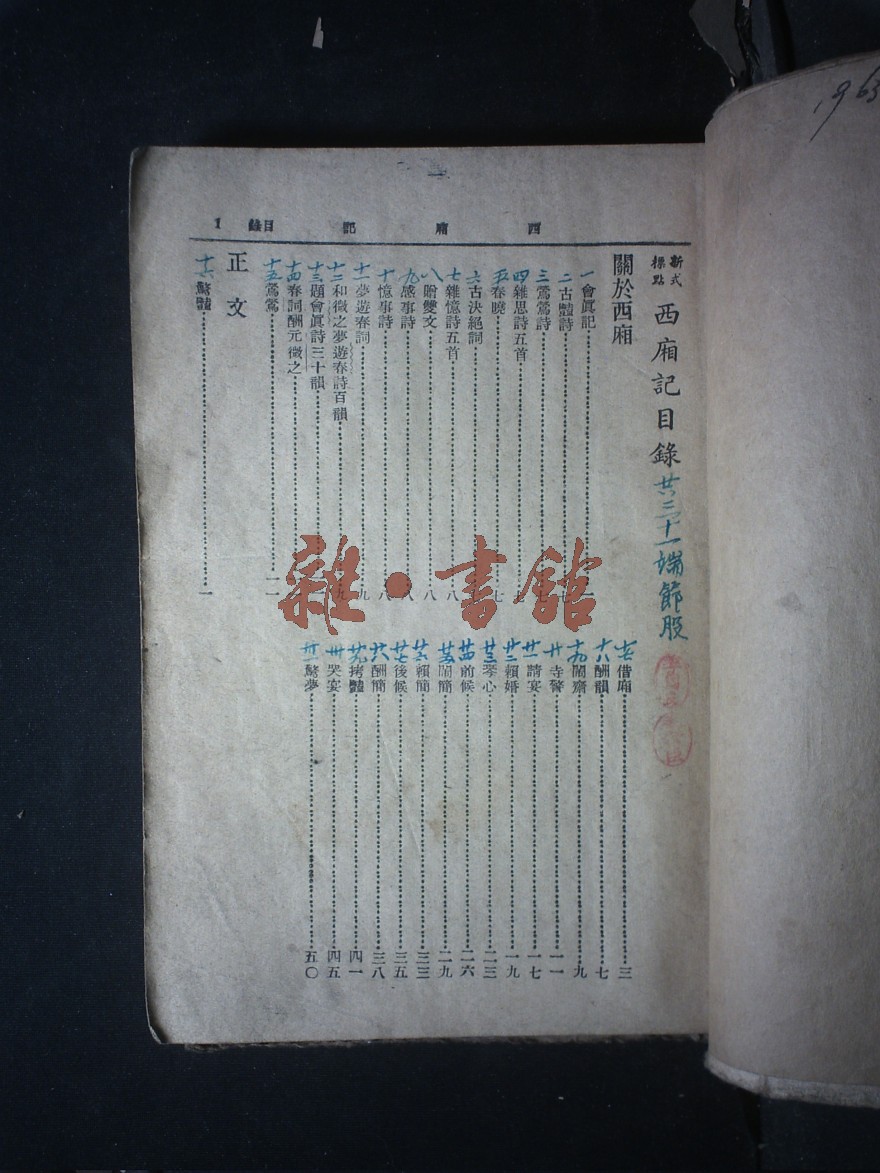 1963
1 錄目 記 廂 西
新式標點 西廂記目錄 廿六三十一端節股
關於西廂
一會眞記
二古豔詩
三鶯鶯詩
四雜思詩五首
五春曉
六古決絕詞 七
七雜憶詩五首 八
八贈雙文 八
九感事詩 八
十憶事詩 八
十一夢遊春詞 九
十二和微之夢遊春詩百韻 九
十三題會眞詩三十韻
十四春詞酬元微之
十五鶯鶯 一一
正文
十六驚豔 一
十七借廂 三
十八酬韻 七
十九鬧齋 九
廿寺警 一一
廿一請宴 一七
廿二賴婚 一九
廿三琴心 二三
廿四前候 二六
廿五鬧簡 二九
廿六賴簡 三三
廿七後候 三五
廿八酬簡 三八
廿九拷豔 四一
卅哭宴 四五
卅一驚夢 五〇
雜·書館